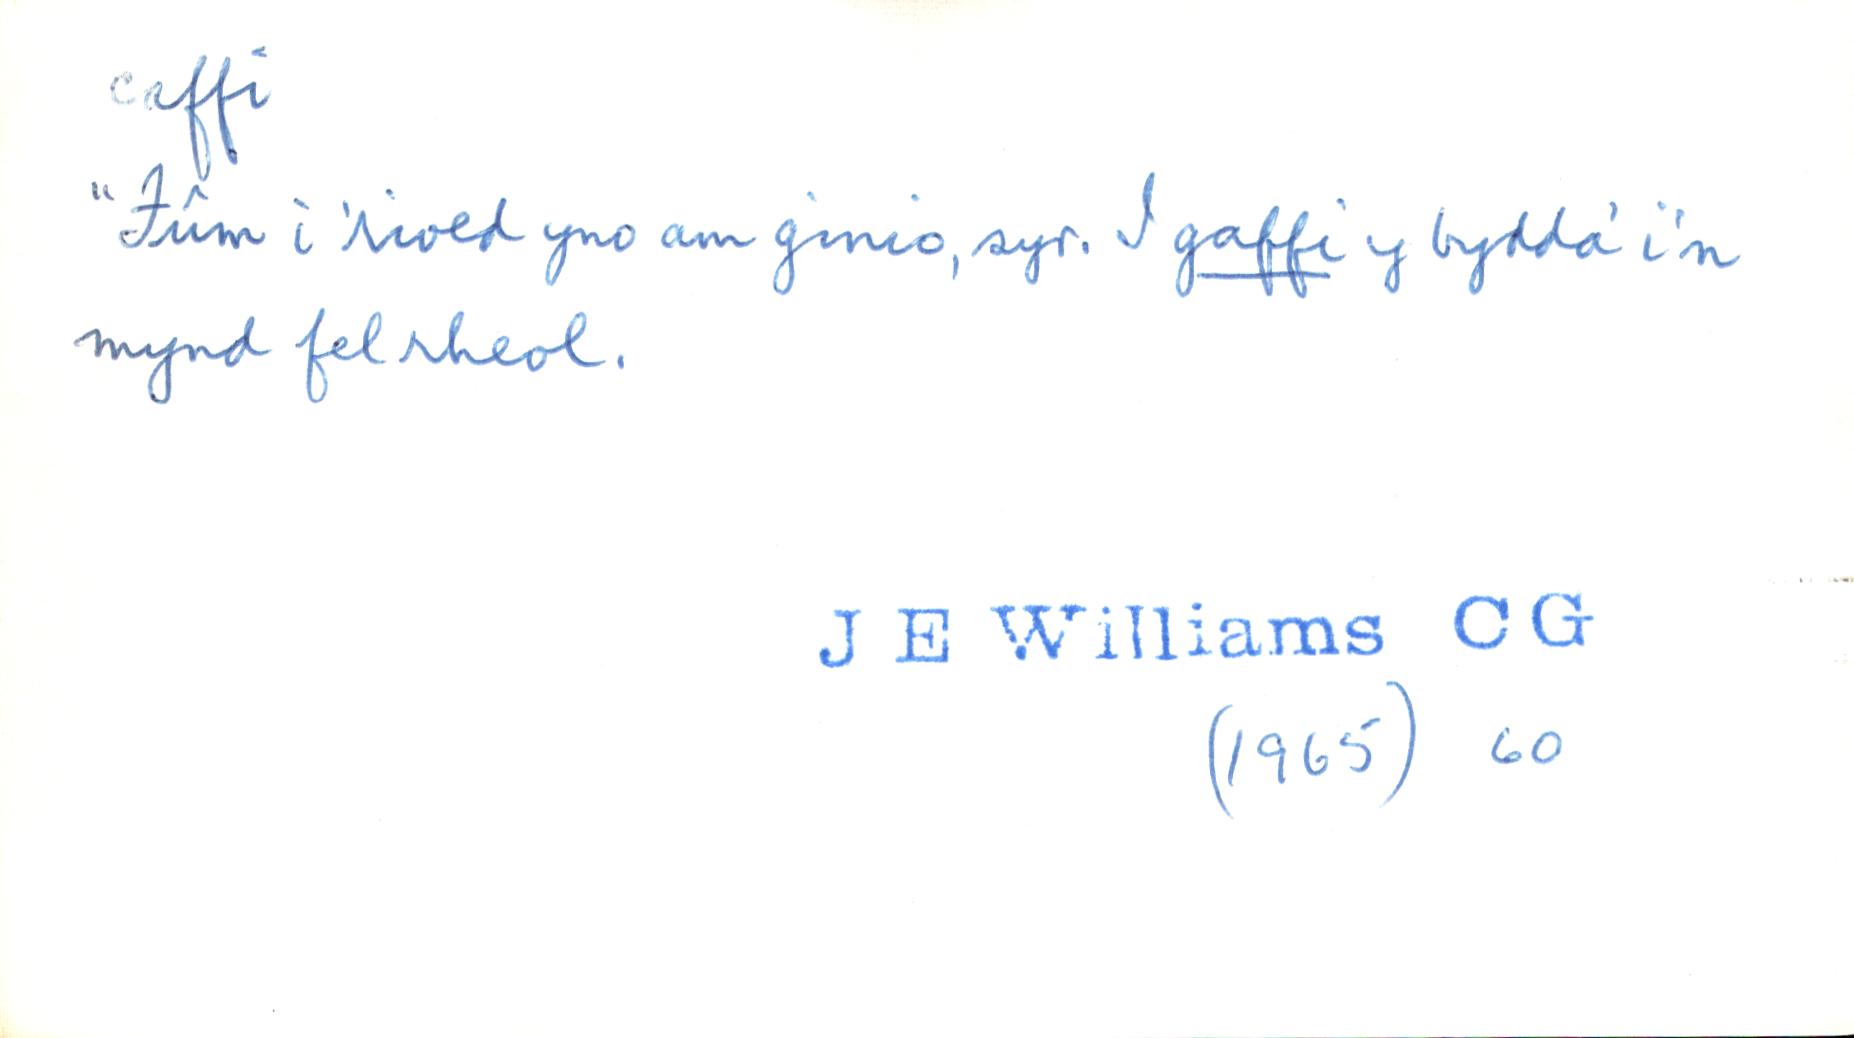 caffi
"Fûm i 'rioed yno am ginio, syr. I gaffi y bydda' i'n
mynd fel rheol.
J E Williams CG
(1965) 60